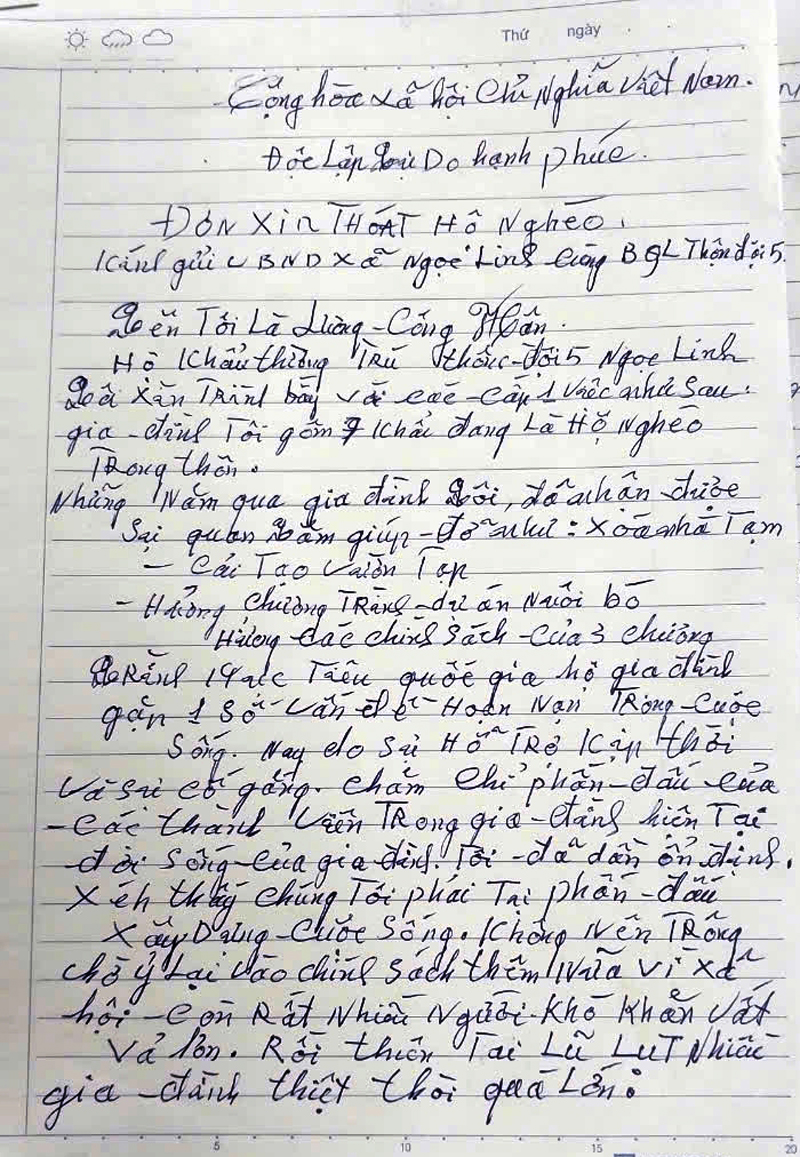 Thứ ngày
Cộng hòa xã hội Chủ Nghĩa Việt Nam.
Độc Lập Tự Do hạnh phúc.
Đơn Xin THOÁT Hộ Nghèo.
Kính gửi UBND Xã Ngọc Linh cùng BQL Thôn đội 5.
Tên Tôi Là Lường Công
Hộ Khẩu thường Trú thôn đội 5 Ngọc Linh
Tôi Xin Trình bày với các cấp 1 việc như sau.
gia đình Tôi gồm 7 Khẩu đang Là Hộ Nghèo
Trong thôn.
Những Năm qua gia đình Tôi, đã nhận được
Sự quan Tâm giúp đỡ như: Xóa nhà Tạm
- Cải Tạo Vườn Tạp
- Hưởng Chương Trình dự án Nuôi bò
Hưởng các chính sách của 3 chương
Trình Mục Tiêu quốc gia hộ gia đình
gặp 1 số vấn đề Hoạn Nạn Trong cuộc
Sống. Nay do Sự Hỗ Trợ Kịp thời
Và Sự cố gắng. chăm chỉ phấn đấu của
các thành Viên Trong gia đình hiện Tại
đời Sống của gia đình. Tôi đã dần ổn định.
Xét thấy chúng Tôi phải Tự phấn đấu
Xây Dựng Cuộc Sống. Không Nên Trông
chờ ỷ Lại Vào chính Sách thêm Nữa Vì Xã
hội Còn Rất Nhiều Người Khó Khăn Vất
Vả hơn. Rồi thiên Tai Lũ LụT Nhiều
gia đình thiệt thòi quá Lớn.
5 10 15 20